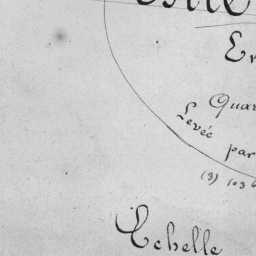 En
Quar
Levée
par
(3) 103
Echelle